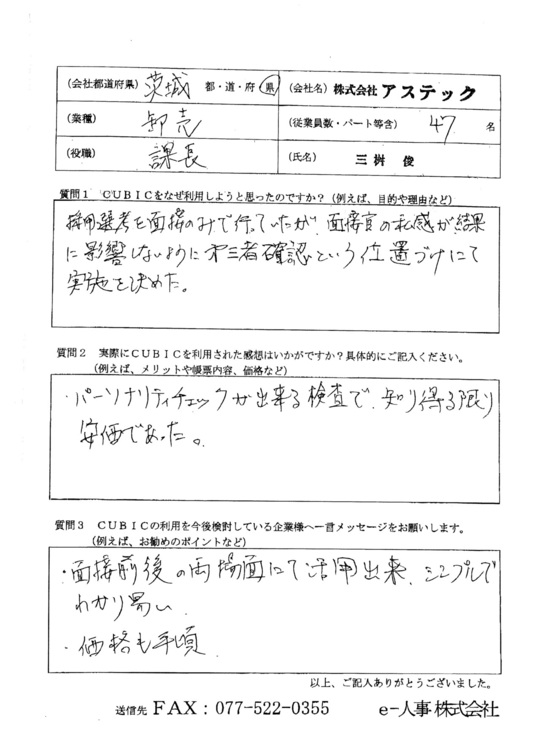 (会社都道府県) 茨城 都・道・府・県 (会社名) 株式会社 アステック
(業種) 卸売 (従業員数・パート等含) 47 名
(役職) 課長 (氏名) 三桝 俊
質問1 CUBICをなぜ利用しようと思ったのですか?(例えば、目的や理由など)
採用選考を面接のみで行っていたが、面接官の私感が結果
に影響しないように第三者確認という位置づけにて
実施を決めた。
質問2 実際にCUBICを利用された感想はいかがですか?具体的にご記入ください。
(例えば、メリットや帳票内容、価格など)
・パーソナリティチェックが出来る検査で、知り得る限り
安価であった。
質問3 CUBICの利用を今後検討している企業様へ一言メッセージをお願いします。
(例えば、お勧めのポイントなど)
・面接前後の両場面にて活用出来、シンプルで
わかり易い
・価格も手頃
以上、ご記入ありがとうございました。
送信先 FAX:077-522-0355 e-人事株式会社